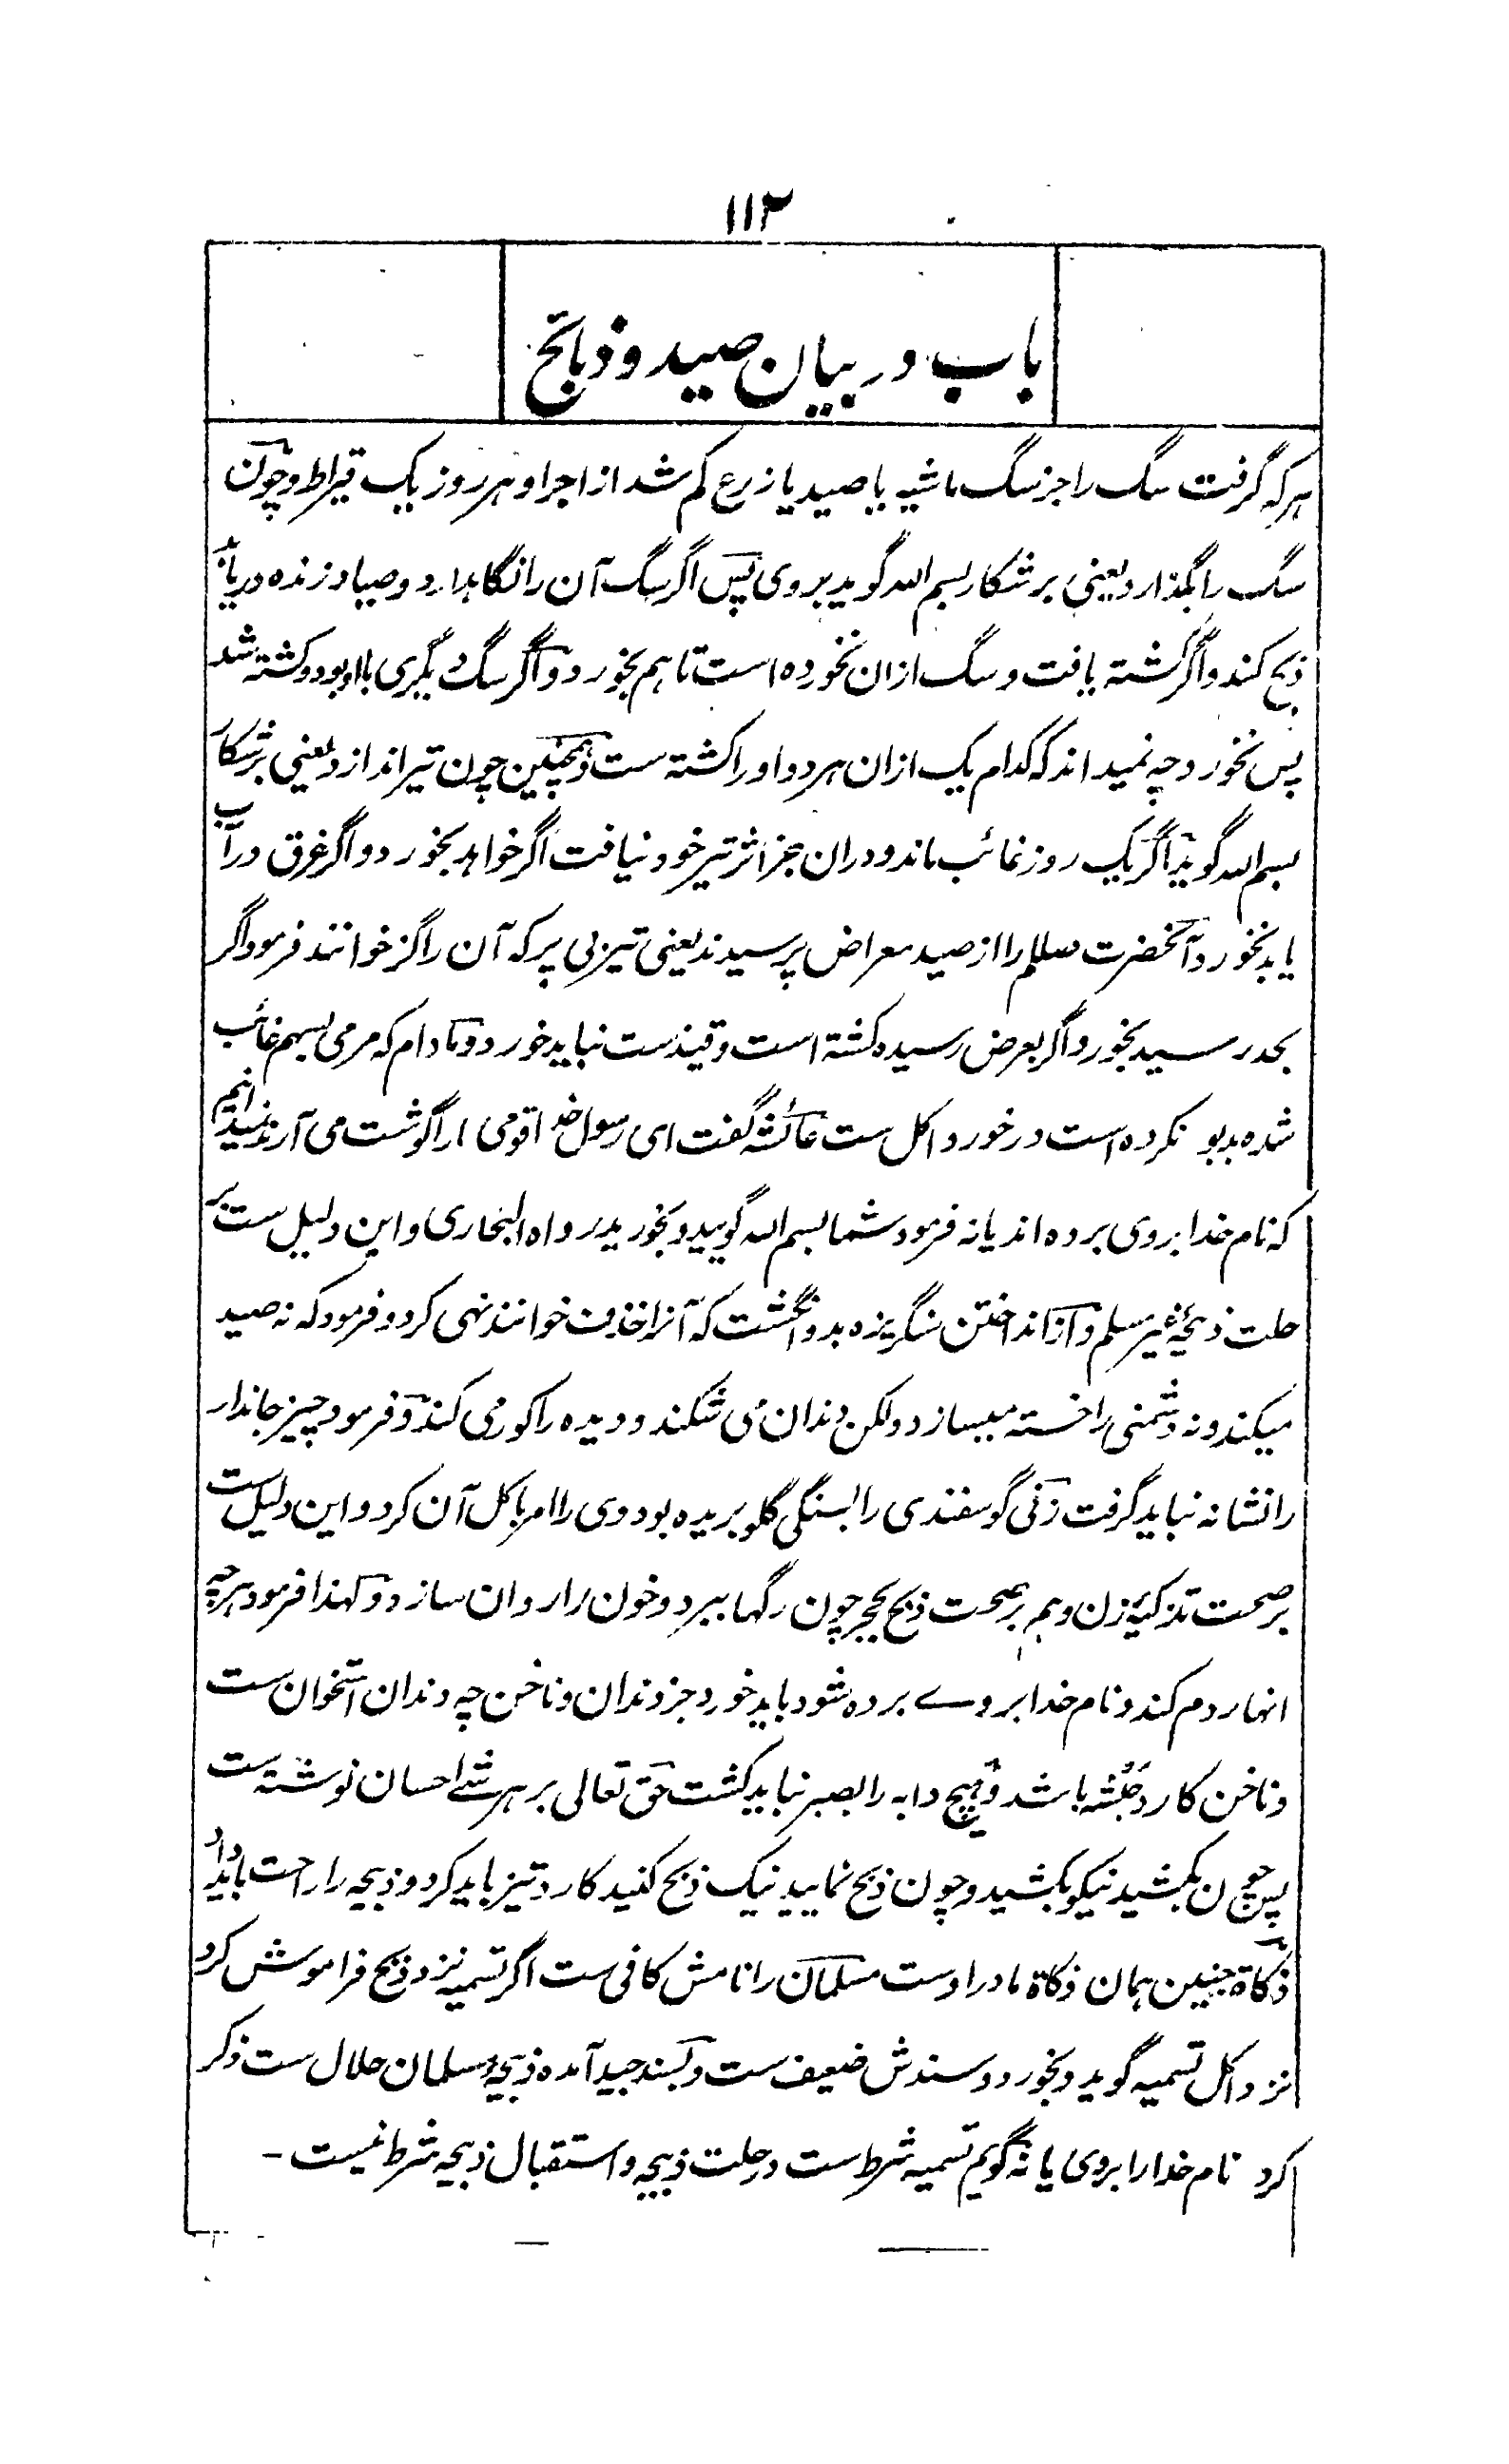 ۱۱۲
باب در بیان صید و ذبائح
هر که گرفت سگ را جز سگ ماشیه یا صید یا زرع کم شد از اجر او هر روز یک قیراط و چون
سگ را بگذارد یعنی بر شکار بسم الله گوید بر وی پس اگر سگ آن را نگاهدارد و صیاد زنده دریابد
ذبح کند و اگر کشته یافت و سگ ازان نخورده است تا هم بخورد و اگر سگ دیگری با او بود و کشته شد
پس نخورد چه نمیداند که کدام یک ازان هر دو او را کشته ست و همچنین چون تیر اندازد یعنی بر شکار
بسم الله گوید اگر یک روز غائب ماند و دران جز اثر تیر خود نیافت اگر خواهد بخورد و اگر غرق در آب
یابد نخورد و آنحضرت صللم را از صید معراض پرسیدند یعنی تیر بی پر که آن را گز خوانند فرمود اگر
بحد رسید بخورد و اگر بعرض رسیده کشته است وقیذ ست نباید خورد و مادام که مرمی بسهم غائب
شده بدبو نکرده است در خورد اکل ست عائشه گفت ای رسول خدا قومی ما را گوشت می آرند نمیدانیم
که نام خدا بروی برده اند یا نه فرمود شما بسم الله گویید و بخورید رواه البخاری و این دلیل ست بر
حلت ذبیحهٔ غیر مسلم و از انداختن سنگریزه بدو انگشت که آنرا خذف خوانند نهی کرد و فرمود که نه صید
میکند و نه دشمنی را خسته میسازد و لکن دندان می شکند و دیده را کور می کند و فرمود چیز جاندار
را نشانه نباید گرفت زنی گوسفندی را بسنگی گلو بریده بود وی را امر باکل آن کرد و این دلیل ست
بر صحت تذکیهٔ زن و هم بر صحت ذبح بحجر چون رگها ببرد و خون را روان سازد و لهذا فرمود هر چه
انهار دم کند و نام خدا بروے برده شود باید خورد جز دندان و ناخن چه دندان استخوان ست
و ناخن کارد حبشه باشد و هیچ دابه را بصبر نباید کشت حق تعالی بر هر شے احسان نوشته ست
پس چون بکشید نیکو بکشید و چون ذبح نمایید نیک ذبح کنید کارد تیز باید کرد و ذبیحه را راحت باید داد
ذکاة جنین همان ذکاة مادر اوست مسلمان را نامش کافی ست اگر تسمیه نزد ذبح فراموش کرد
نزد اکل تسمیه گوید و بخورد و سندش ضعیف ست و بسند جید آمده ذبیحهٔ مسلمان حلال ست ذکر
کرد نام خدا را بروی یا نه گویم تسمیه شرط ست در حلت ذبیحه و استقبال ذبیحه شرط نیست -